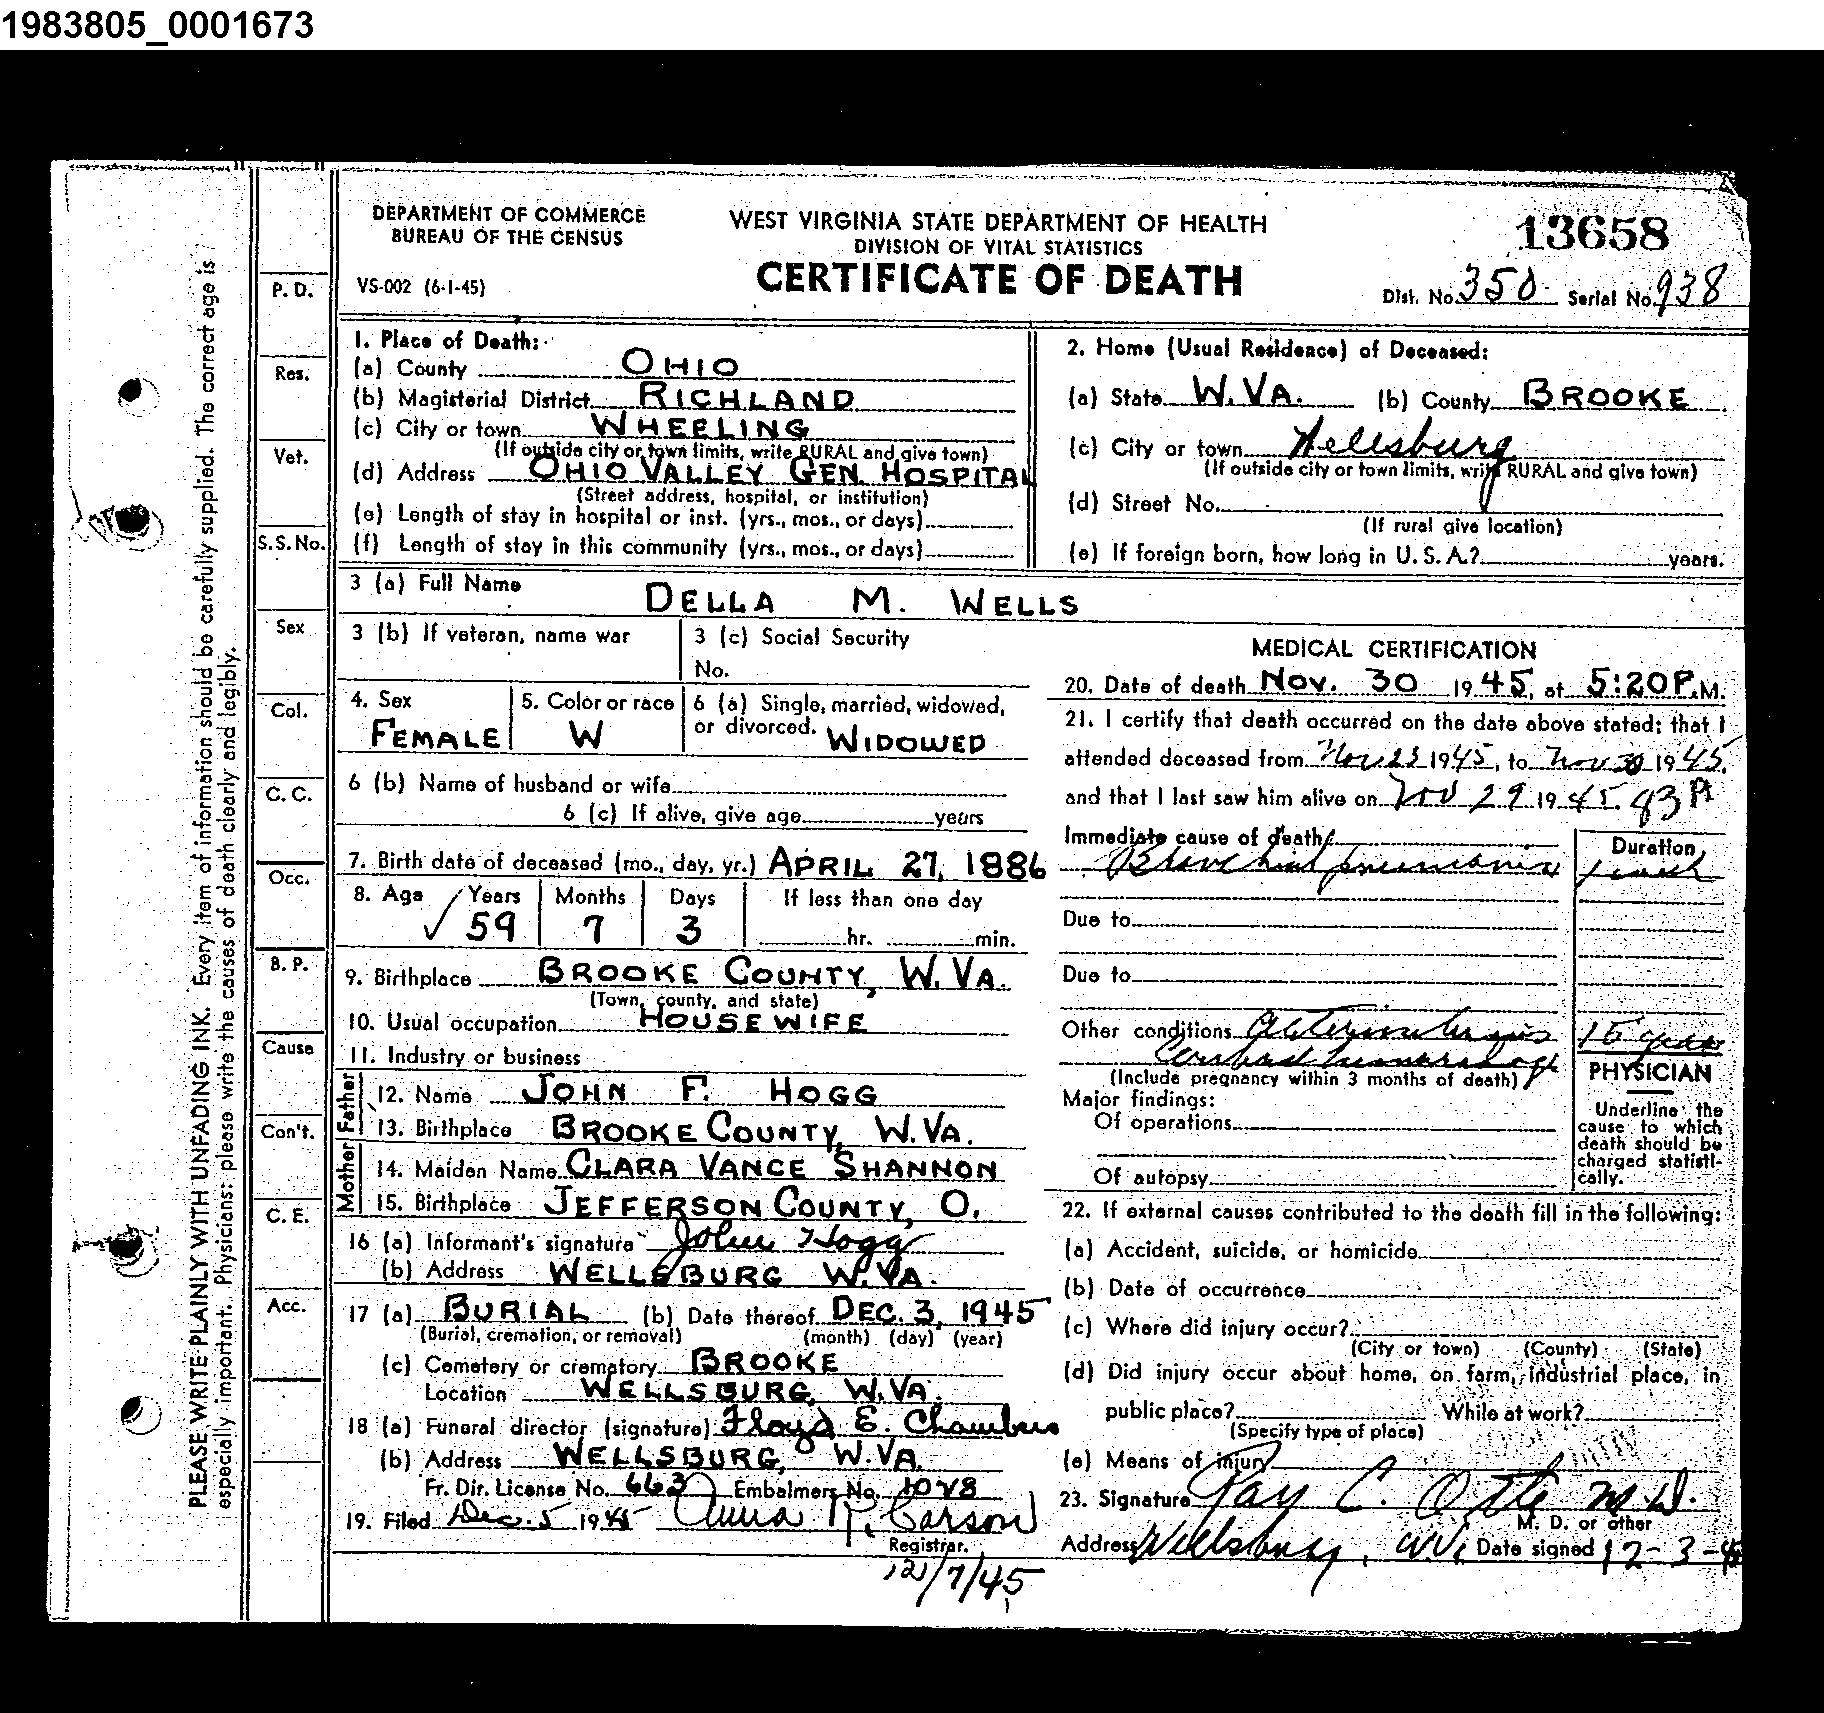 1983805_0001673
DEPARTMENT OF COMMERCE
BUREAU OF THE CENSUS
VS-002 (6-1-45)
WEST VIRGINIA STATE DEPARTMENT OF HEALTH
DIVISION OF VITAL STATISTICS
CERTIFICATE OF DEATH
13658
Dist. No. 350 Serial No. 938
PLEASE WRITE PLAINLY WITH UNFADING INK. Every item of information should be carefully supplied. The correct age is
especially important. Physicians: please write the causes of death clearly and legibly.
P. D.
Res.
Vet.
S.S.No.
Sex
Col.
C. C.
Occ.
B. P.
Cause
Con't.
C. E.
Acc.
1. Place of Death:
(a) County OHIO
(b) Magisterial District RICHLAND
(c) City or town WHEELING
(If outside city or town limits, write RURAL and give town)
(d) Address OHIO VALLEY GEN. HOSPITAL
(Street address, hospital, or institution)
(e) Length of stay in hospital or inst. (yrs., mos., or days)
(f) Length of stay in this community (yrs., mos., or days)
2. Home (Usual Residence) of Deceased:
(a) State W. VA. (b) County BROOKE
(c) City or town Wellsburg
(If outside city or town limits, write RURAL and give town)
(d) Street No.
(If rural give location)
(e) If foreign born, how long in U. S. A.? years.
3 (a) Full Name DELLA M. WELLS
3 (b) If veteran, name war
3 (c) Social Security
No.
4. Sex
FEMALE
5. Color or race
W
6 (a) Single, married, widowed,
or divorced. WIDOWED
6 (b) Name of husband or wife
6 (c) If alive, give age years
7. Birth date of deceased (mo., day, yr.) APRIL 27, 1886
8. Age Years Months Days If less than one day
✓ 59 7 3 hr. min.
9. Birthplace BROOKE COUNTY, W. VA.
(Town, county, and state)
10. Usual occupation HOUSEWIFE
11. Industry or business
Father
12. Name JOHN F. HOGG
13. Birthplace BROOKE COUNTY, W. VA.
Mother
14. Maiden Name CLARA VANCE SHANNON
15. Birthplace JEFFERSON COUNTY, O.
16 (a) Informant's signature John Hogg
(b) Address WELLSBURG W. VA.
17 (a) BURIAL (b) Date thereof DEC. 3, 1945
(Burial, cremation, or removal) (month) (day) (year)
(c) Cemetery or crematory BROOKE
Location WELLSBURG, W. VA.
18 (a) Funeral director (signature) Floyd E. Chambers
(b) Address WELLSBURG, W. VA.
Fr. Dir. License No. 663 Embalmers No. 1048
19. Filed Dec. 5 1945 Anna K. Carson
Registrar.
12/7/45
MEDICAL CERTIFICATION
20. Date of death NOV. 30 1945, at 5:20 P.M.
21. I certify that death occurred on the date above stated; that I
attended deceased from Nov 23 1945, to Nov 30 1945,
and that I last saw him alive on Nov 29 1945.
Immediate cause of death
Bronchial pneumonia
Duration
1 week
Due to
Due to
Other conditions
Cerebral hemorrhage
15 years
(Include pregnancy within 3 months of death)
Major findings:
Of operations
Of autopsy
PHYSICIAN
Underline the
cause to which
death should be
charged statisti-
cally.
22. If external causes contributed to the death fill in the following:
(a) Accident, suicide, or homicide
(b) Date of occurrence
(c) Where did injury occur?
(City or town) (County) (State)
(d) Did injury occur about home, on farm, industrial place, in
public place? While at work?
(Specify type of place)
(e) Means of injury
23. Signature Ray C. M.D.
M. D. or other
Address Wellsburg, W.V. Date signed 12-3-45